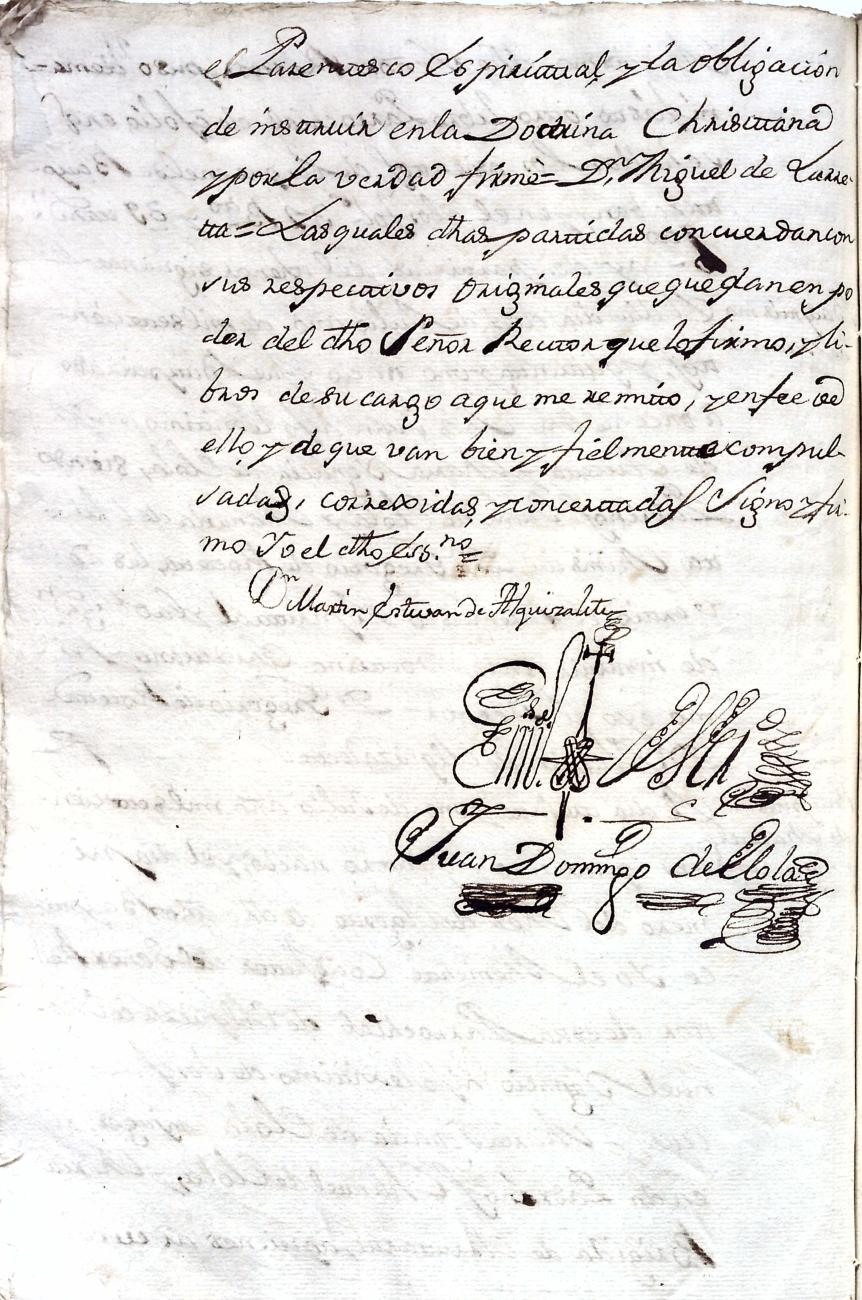 el Parentesco Espiritual, y la obligacion
de instruir en la Doctrina Christiana
y por la verdad firmè = Dn. Miguel de Larre-
ta = Las quales dhas partidas concuerdan con
sus respectivos originales que quedan en po
der del dho Señor Rector que lo firmo, y li-
bros de su cargo a que me remito, y en fee de
ello, y de que van bien y fielmente compul-
sadas, correxidas, y concertadas Signo y fir-
mo Yo el dho Essno. =
Dn Martin Estevan de Alquizalete
En
Juan Domingo de Elola